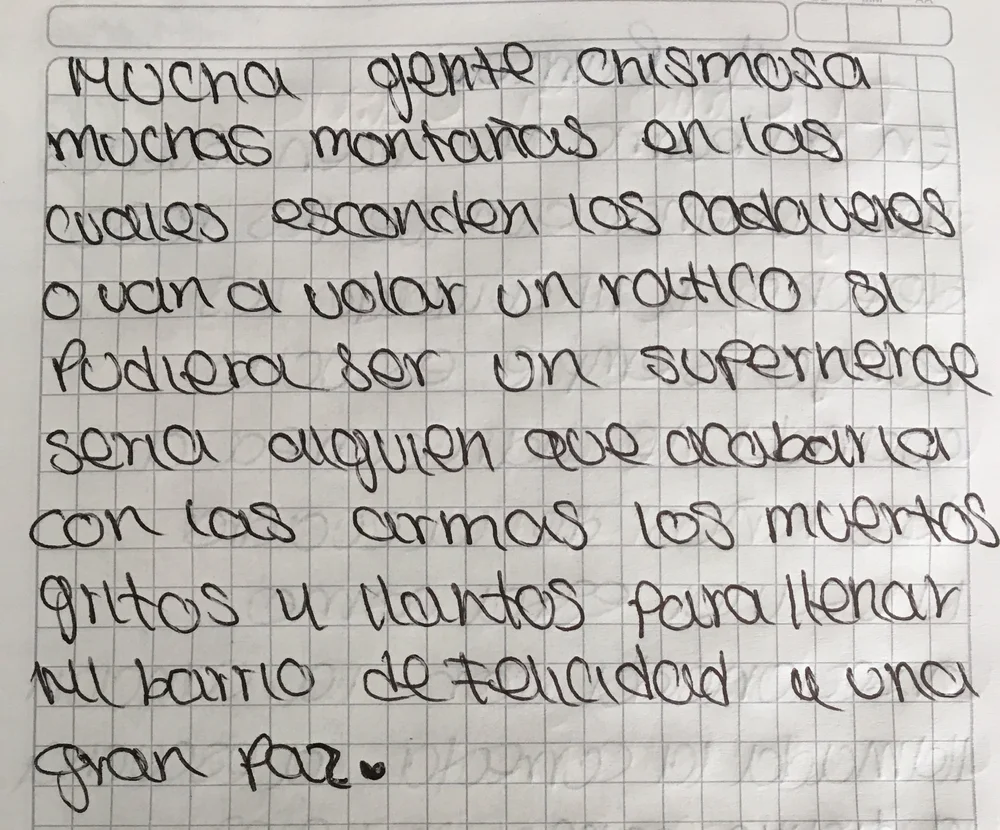 Mucha gente chismosa
muchas montañas en las
cuales esconden los cadaveres
o van a volar un ratico si
Pudiera ser un superheroe
seria alguien que acabaria
con las armas los muertos
gritos y llantos para llenar
Mi barrio de felicidad y una
gran Paz.